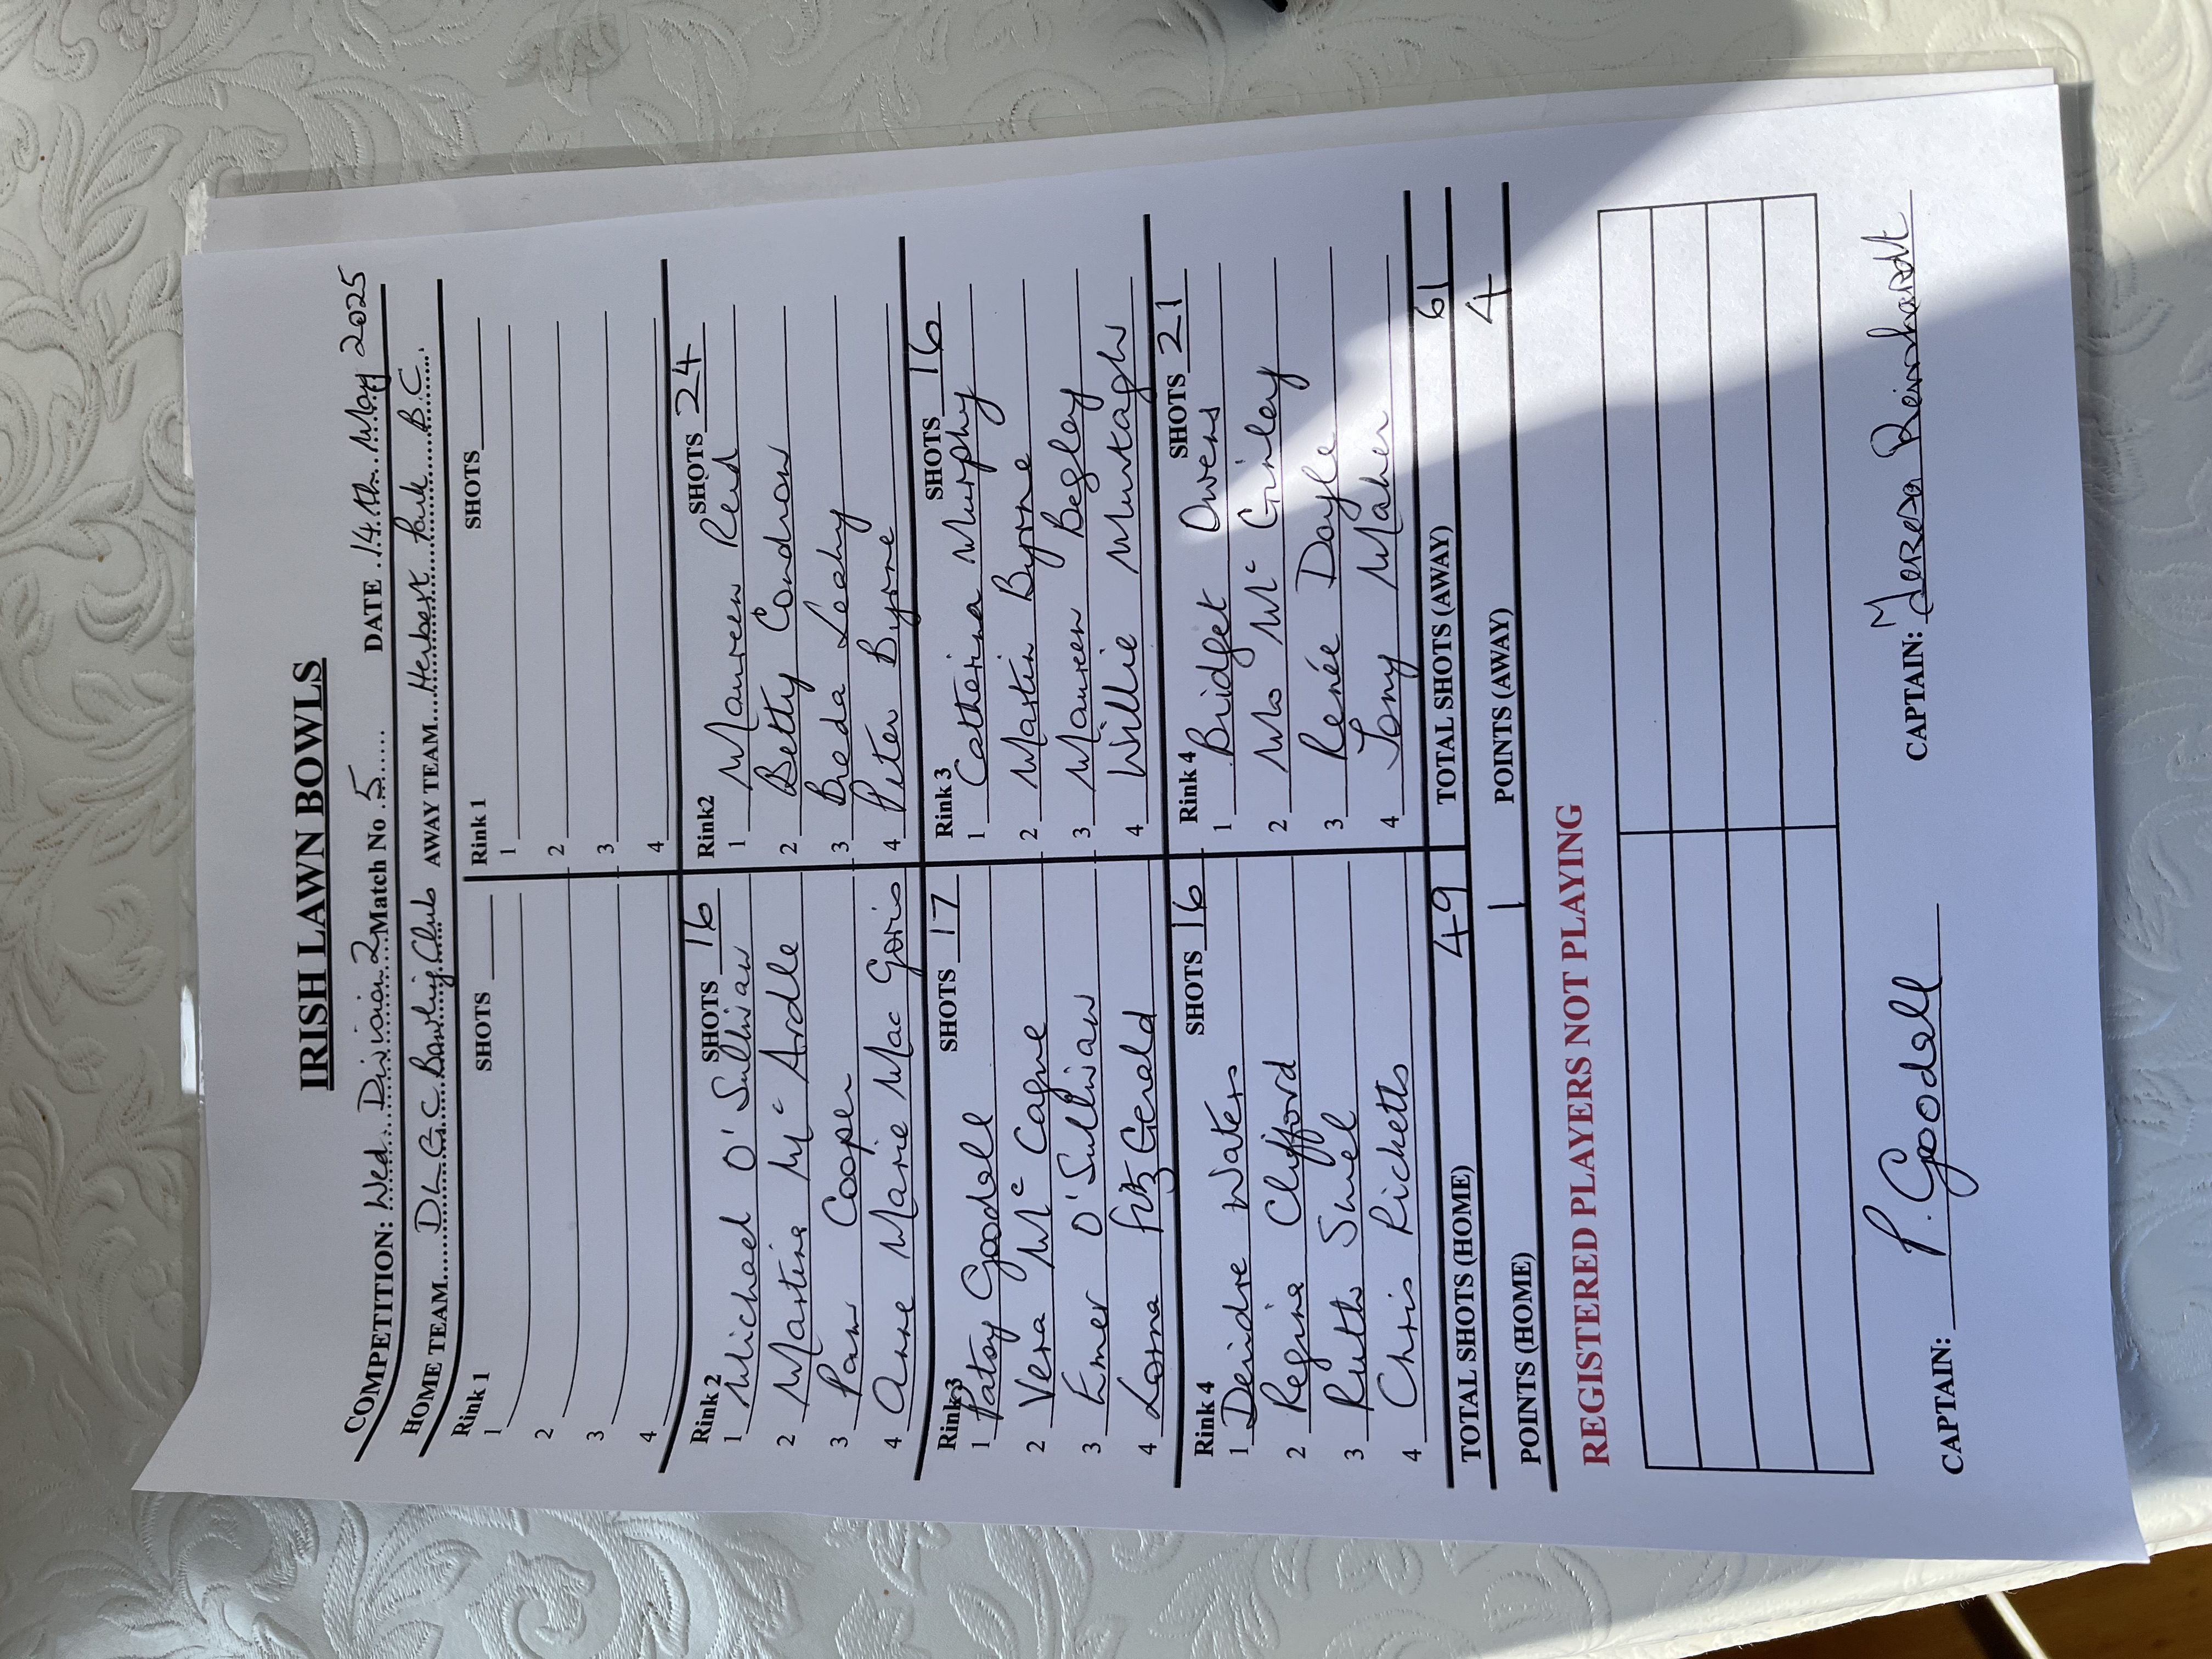 IRISH LAWN BOWLS
COMPETITION: Wed. Division 2 Match No. 5 DATE 14th May 2025
HOME TEAM D L B.C Bowling Club AWAY TEAM Herbert Park B.C.
Rink 1 SHOTS Rink 1 SHOTS
1 1
2 2
3 3
4 4
Rink 2 SHOTS 16 Rink2 SHOTS 24
1 Michael O'Sullivan 1 Maureen Reid
2 Martina Mc Ardle 2 Betty Condron
3 Pam Cooper 3 Breda Leahy
4 Anne Marie Mac Goris 4 Peter Byrne
Rink 3 SHOTS 17 Rink 3 SHOTS 16
1 Patsy Goodall 1 Catherina Murphy
2 Vera Mc Cague 2 Martin Byrne
3 Emer O'Sullivan 3 Maureen Begley
4 Lorna FitzGerald 4 Willie Murtagh
Rink 4 SHOTS 16 Rink 4 SHOTS 21
1 Deirdre Waters 1 Bridget Owens
2 Regina Clifford 2 Mo Mc Ginley
3 Ruth 3 Renée Doyle
4 Chris Ricketts 4 Tony Maher
TOTAL SHOTS (HOME) 49 TOTAL SHOTS (AWAY) 61
POINTS (HOME) 1 POINTS (AWAY) 4
REGISTERED PLAYERS NOT PLAYING
CAPTAIN: P. Goodall CAPTAIN: M Teresa Reinhardt